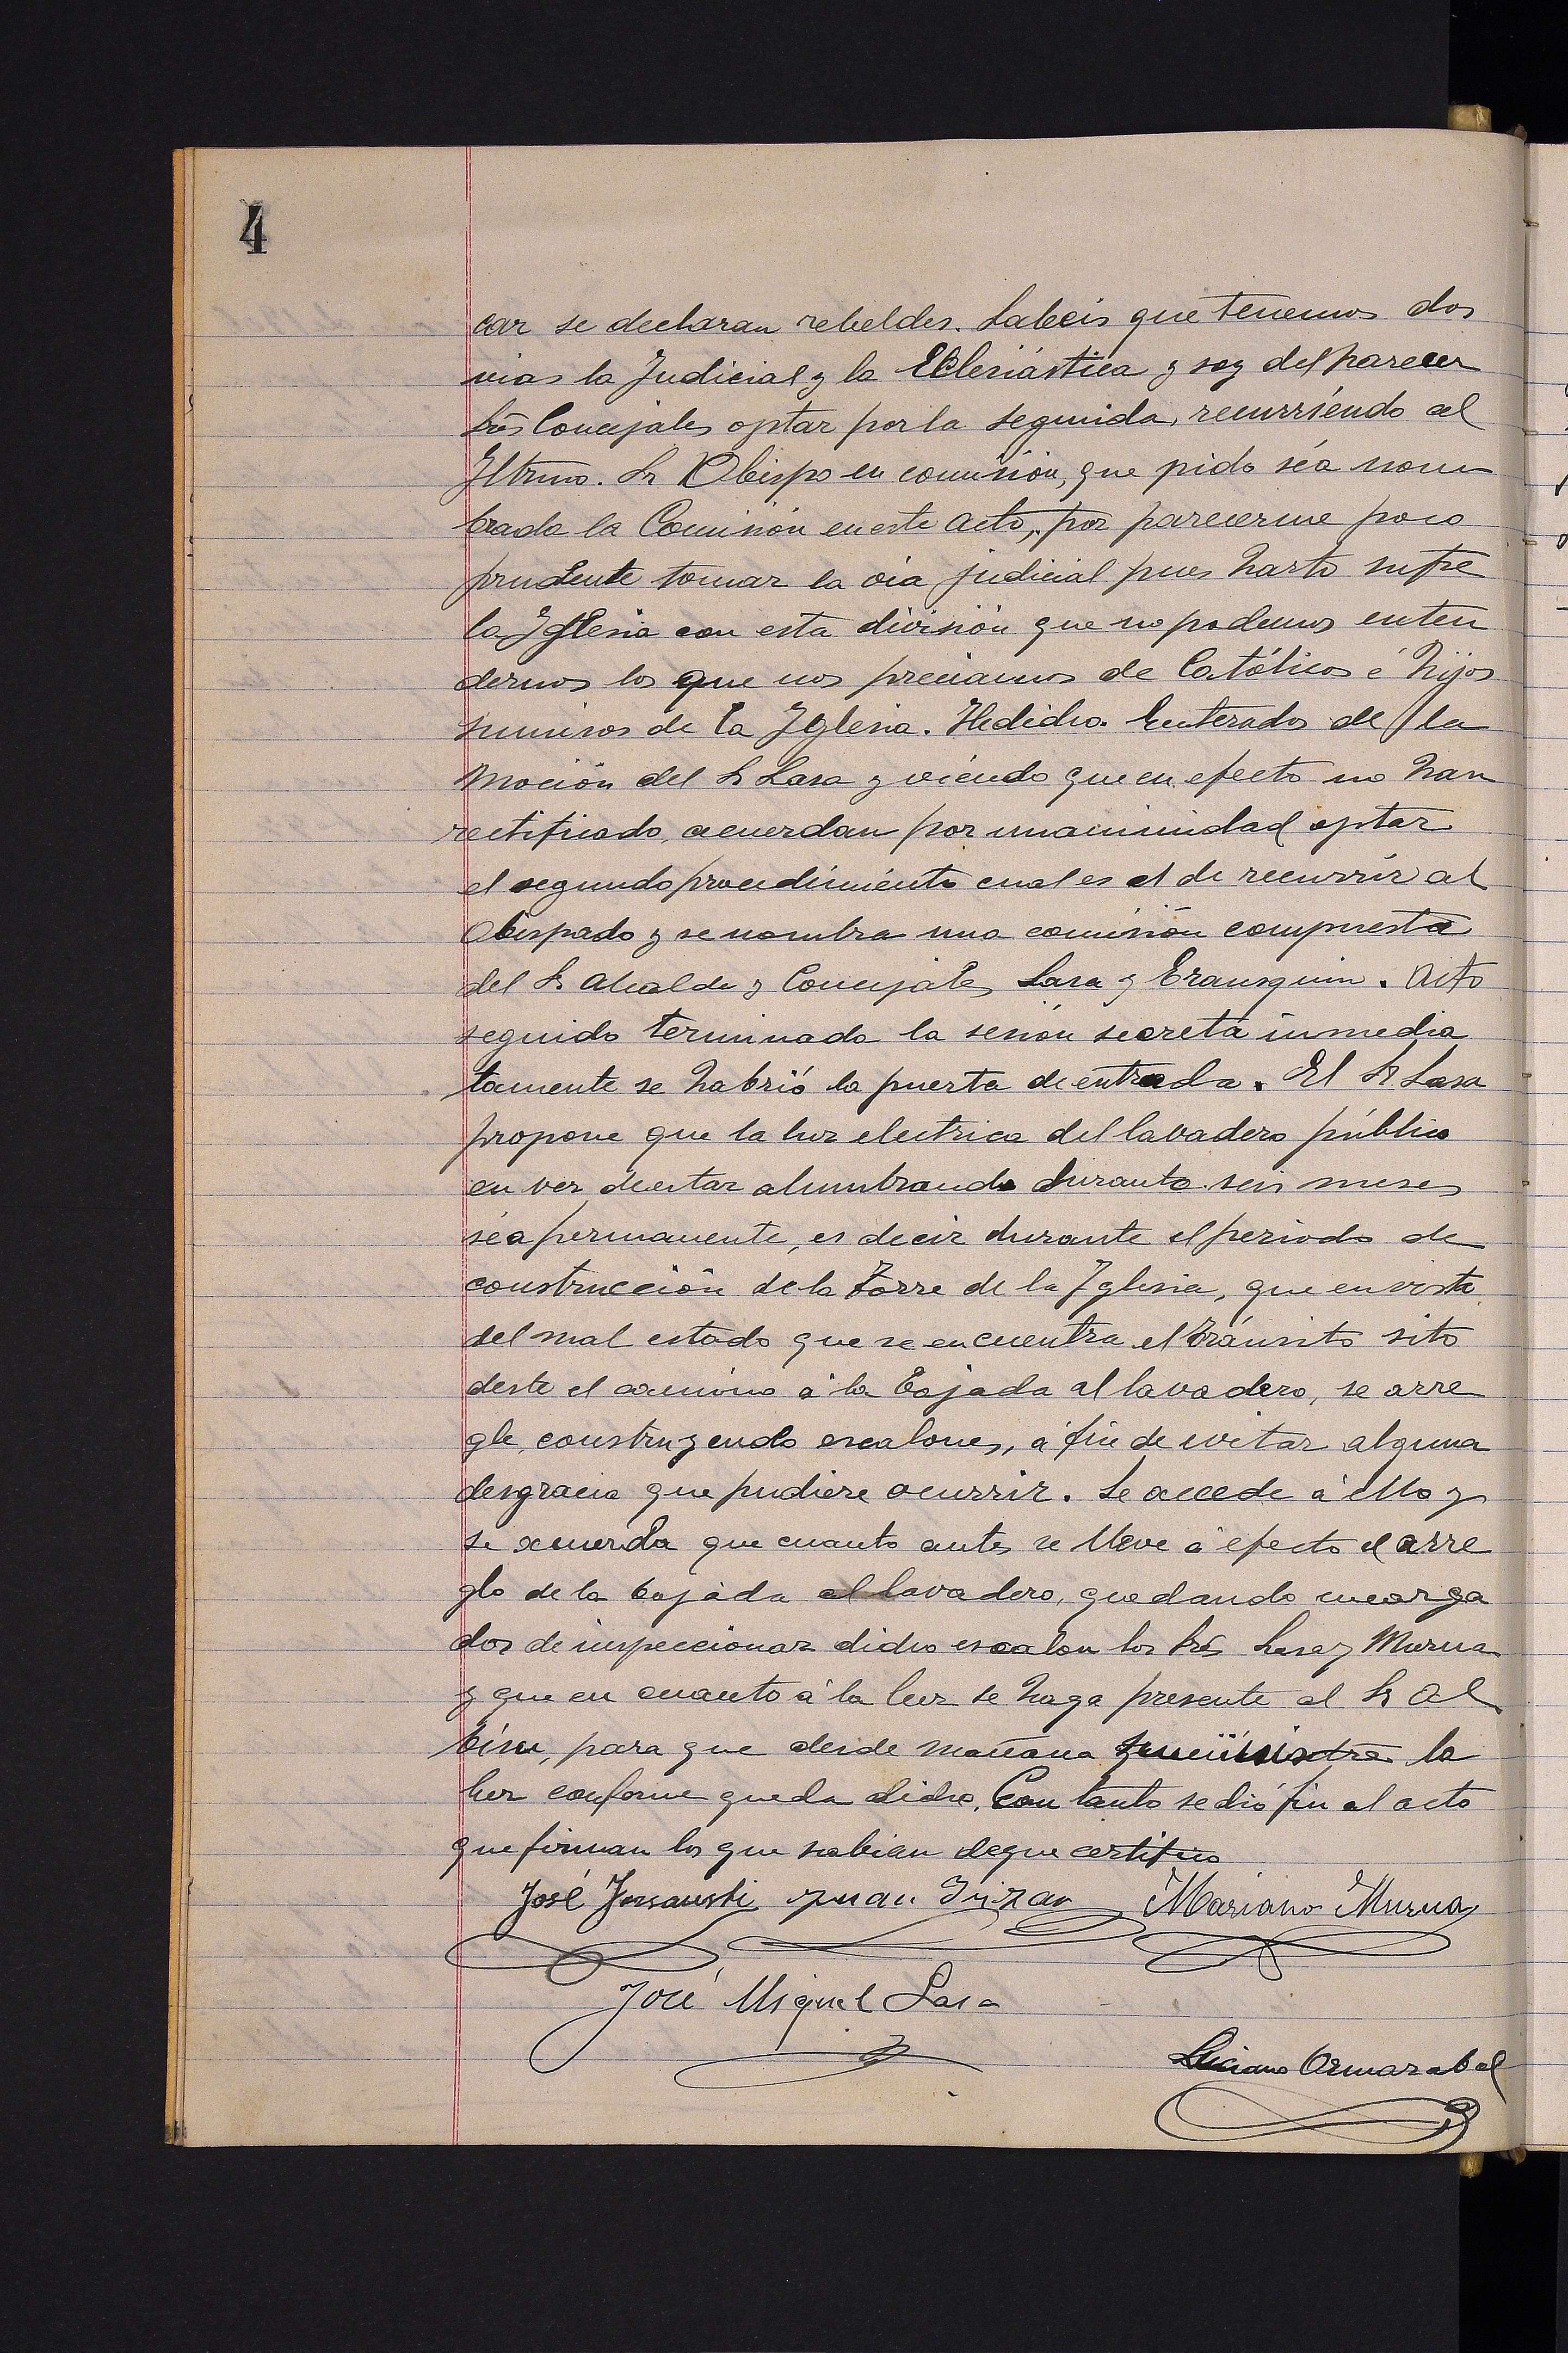 4
car se declaran rebeldes. Sabeis que tenemos dos
vias la Judicial y la Eclesiástica y soy del parecer
Srēs Concejales optar por la segunda, recurriéndo al
Iltmo. Sr Obispo en comisión, que pido séa nom
brada la Comisión en este acto, por parecerme poco
prudente tomar la via judicial pues harto sufre
la Iglesia con esta división que no podemos enten
dernos los que nos preciamos de Católicos é hijos
sumisos de la Iglesia. He dicho. Enterados de la
moción del Sr Lasa y viendo que en efecto no han
rectificado, acuerdan por unanimidad optar
el segundo procedimiento cual es el de recurrir al
Obispado y se nombra una comisión compuesta
del Sr Alcalde y Concejales Lasa y Eransquin. Acto
seguido terminada la sesión secreta inmedia
tamente se habrió la puerta de entrada. El Sr Lasa
propone que la luz electrica del lavadero público
en vez de estar alumbrando durante seis meses
séa permanente, es decir durante el periodo de
construcción de la Torre de la Iglesia, que en vista
del mal estado que se encuentra el tránsito sito
deste el camino á la bajada al lavadero, se arre
gle, construyendo escalones, á fin de evitar alguna
desgracia que pudiere ocurrir. Se accede á ello y
se acuerda que cuanto antes se lleve á efecto el arre
glo de la bajada al lavadero, quedando encarga
dos de inspeccionar dicho escalon los Srēs Lasa y Murua
y que en cuanto á la luz se haga presente al Sr Al
bisu, para que desde mañana suministre la
luz conforme queda dicho. Con tanto se dió fin al acto
que firman los que sabian de que certifico
José Insausti Juan Irizar Mariano Murua
José Miguel Lasa
Luciano Ormazabal